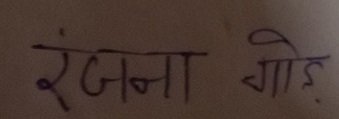 रंजना गोड़